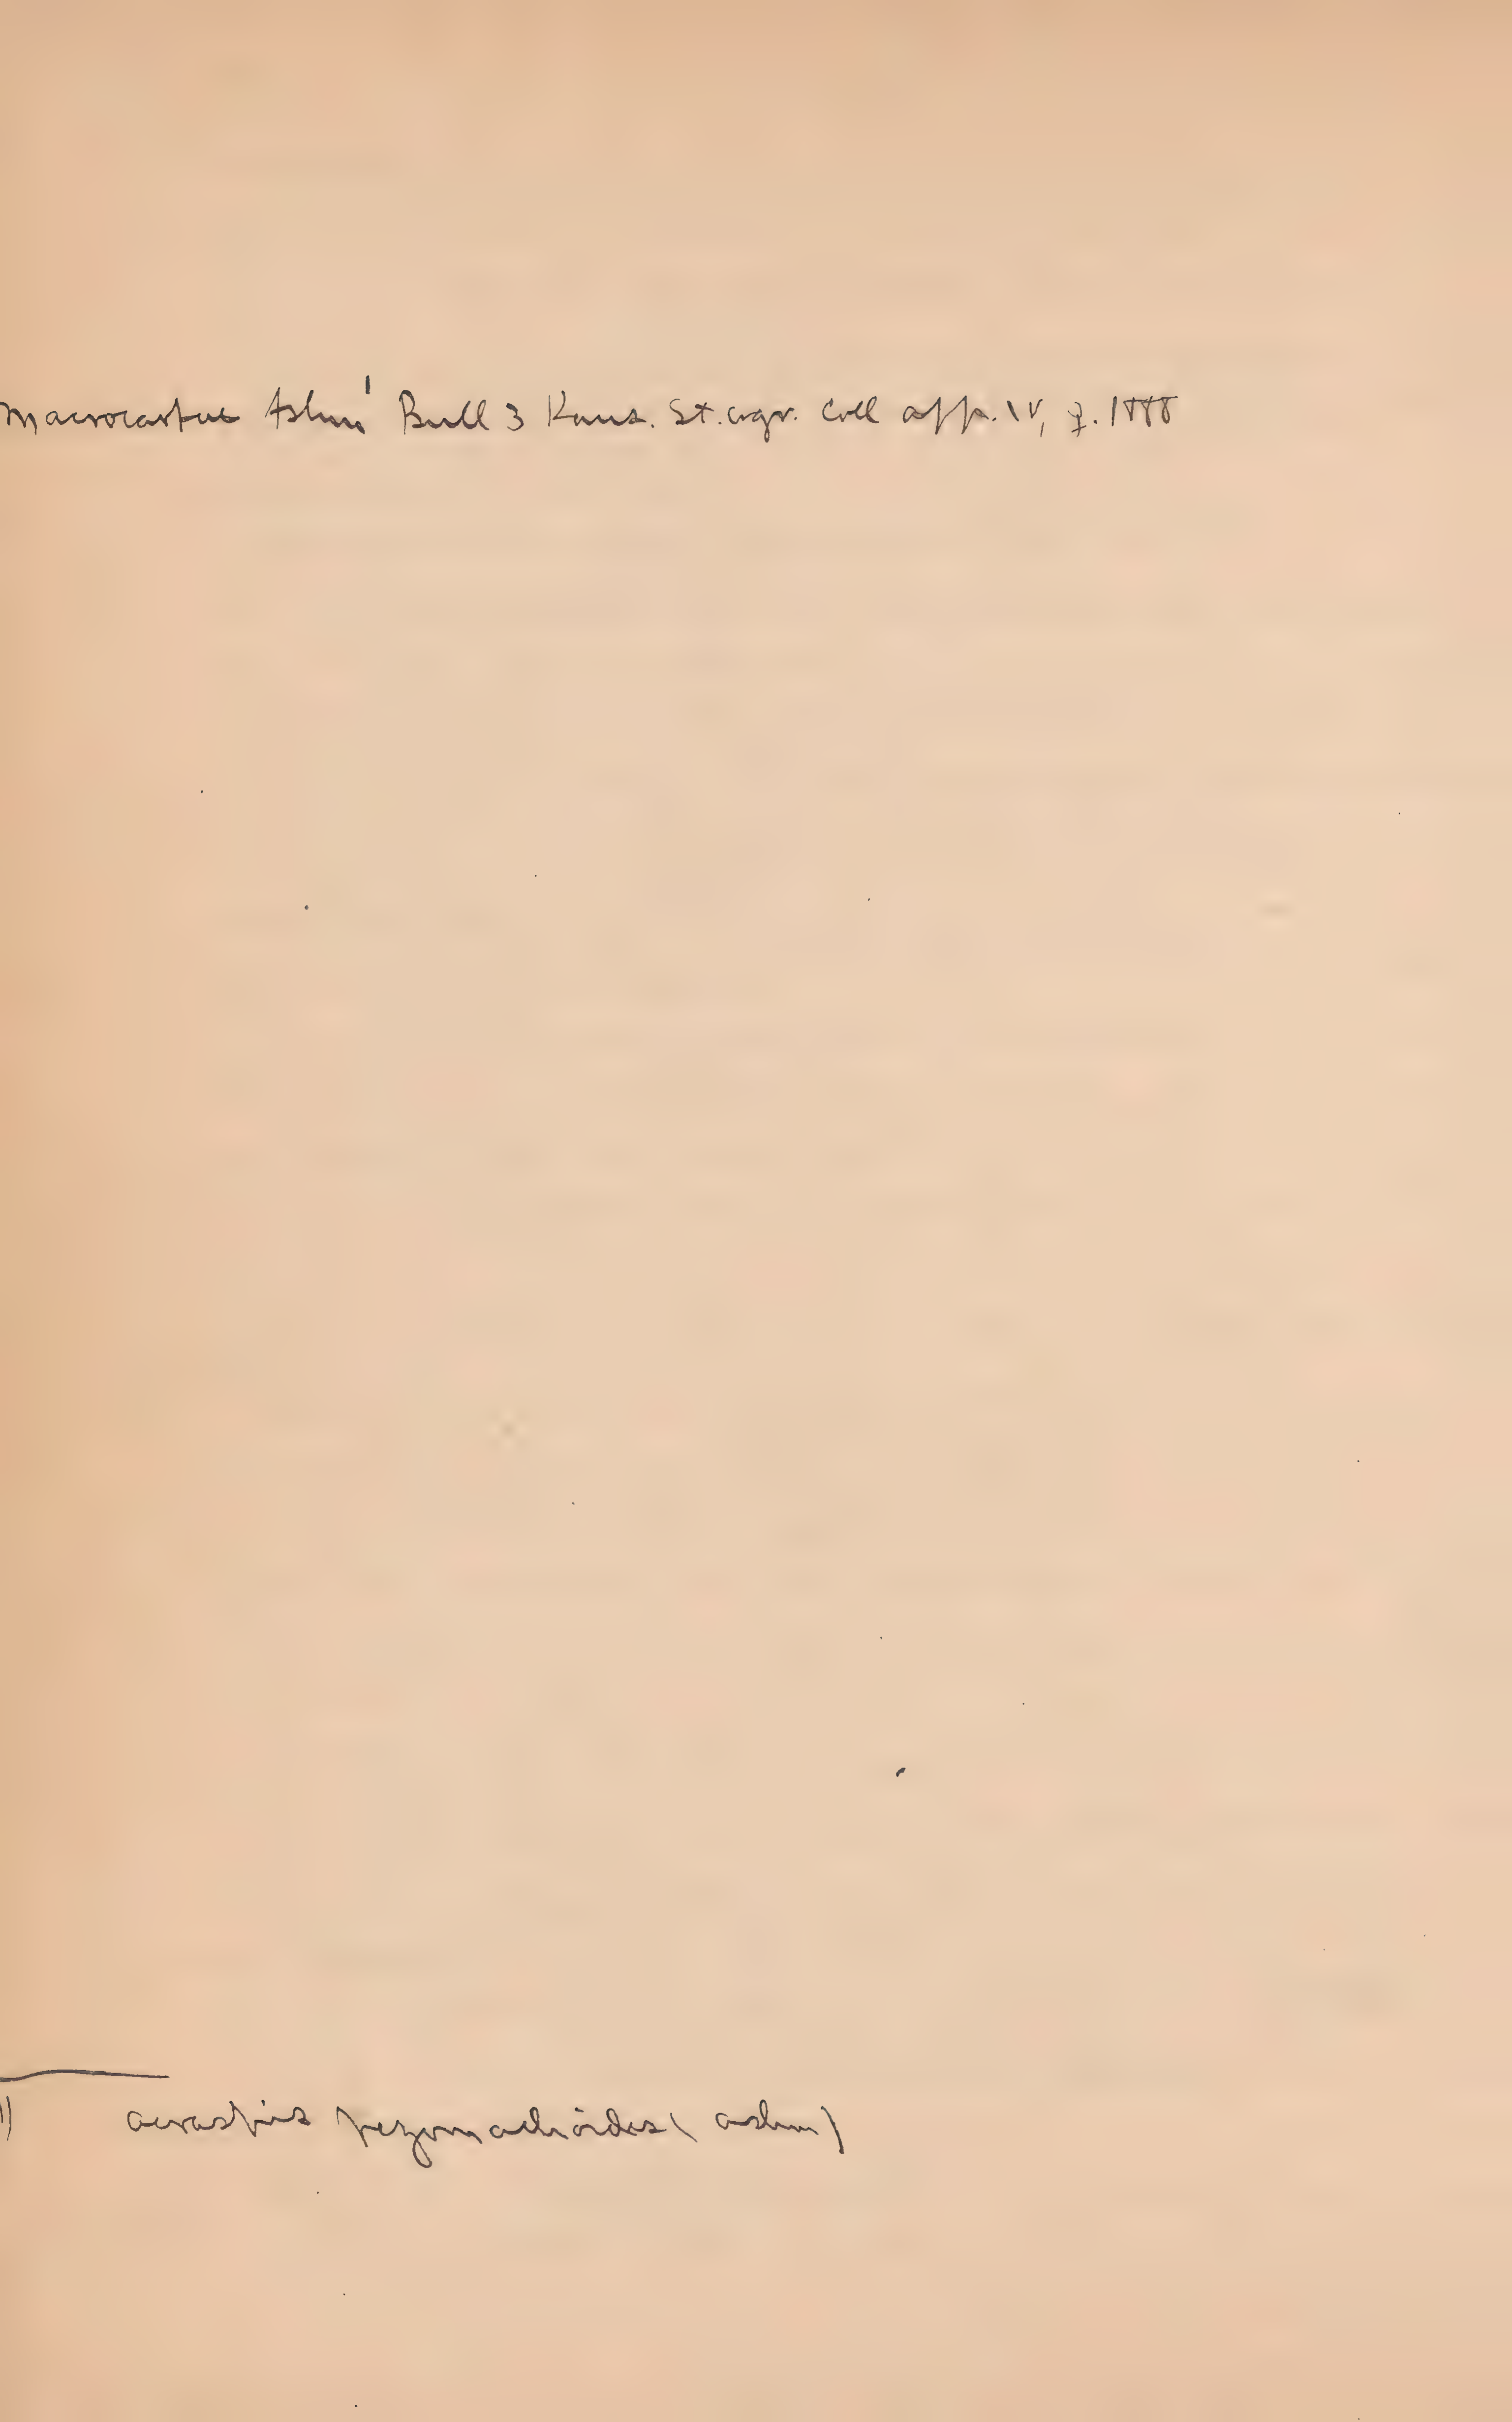 macrocarpae Ashm' Bull 3 Kans. St. agr. Coll app. IV, ♀. 1888
1) acraspis pezomachoides (ashm)